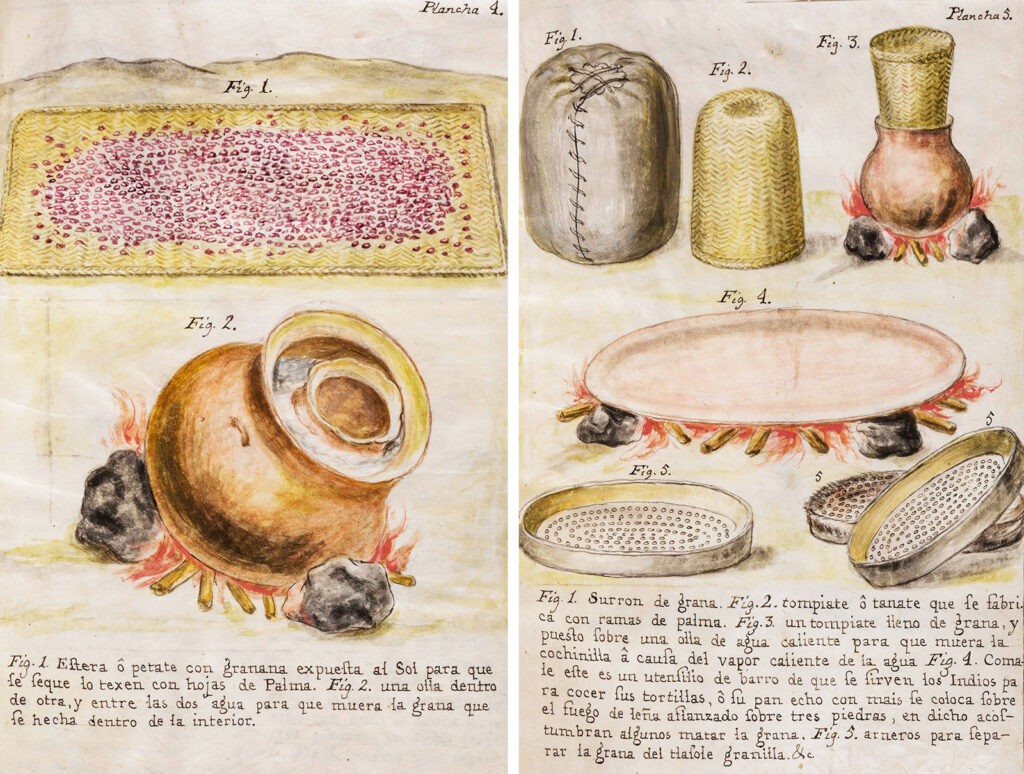 Plancha 4.
Fig. 1.
Fig. 2.
Fig. 1. Eſtera ô petate con granana expueſta al Sol para que
ſe ſeque lo texen con hojas de Palma. Fig. 2. una olla dentro
de otra, y entre las dos agua para que muera la grana que
ſe hecha dentro de la interior.
Plancha 5.
Fig. 1.
Fig. 2.
Fig. 3.
Fig. 4.
Fig. 5.
5
5
Fig. 1. Surron de grana. Fig. 2. tompiate ô tanate que ſe fabri
ca con ramas de palma. Fig. 3. un tompiate lleno de grana, y
pueſto ſobre una olla de agua caliente para que muera la
cochinilla â cauſa del vapor caliente de la agua Fig. 4. Coma-
le eſte es un utenſilio de barro de que ſe ſirven los Indios pa
ra cocer ſus tortillas, ô ſu pan echo con mais ſe coloca ſobre
el fuego de leña afianzado ſobre tres piedras, en dicho acoſ-
tumbran algunos matar la grana. Fig. 5. arneros para ſepa-
rar la grana del tlaſole granilla. &c